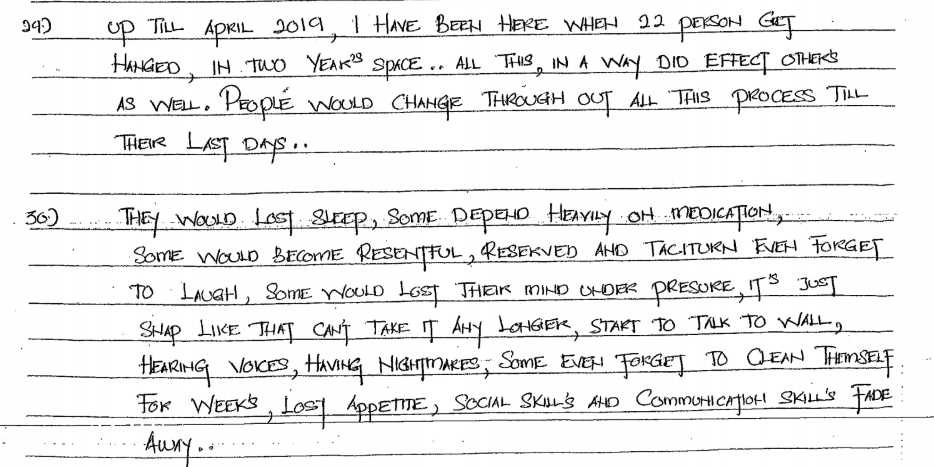 29) UP TILL APRIL 2019, I HAVE BEEN HERE WHEN 22 PERSON GET
HANGED, IN TWO YEAR'S SPACE.. ALL THIS, IN A WAY DID EFFECT OTHERS
AS WELL. PEOPLE WOULD CHANGE THROUGH OUT ALL THIS PROCESS TILL
THEIR LAST DAYS..
30) THEY WOULD LOST SLEEP, SOME DEPEND HEAVILY ON MEDICATION,
SOME WOULD BECOME RESENTFUL, RESERVED AND TACITURN EVEN FORGET
TO LAUGH, SOME WOULD LOST THEIR MIND UNDER PRESURE, IT'S JUST
SNAP LIKE THAT CAN'T TAKE IT ANY LONGER, START TO TALK TO WALL,
HEARING VOICES, HAVING NIGHTMARES, SOME EVEN FORGET TO CLEAN THEMSELF
FOR WEEK'S, LOST APPETITE, SOCIAL SKILL'S AND COMMUNICATION SKILL'S FADE
AWAY..